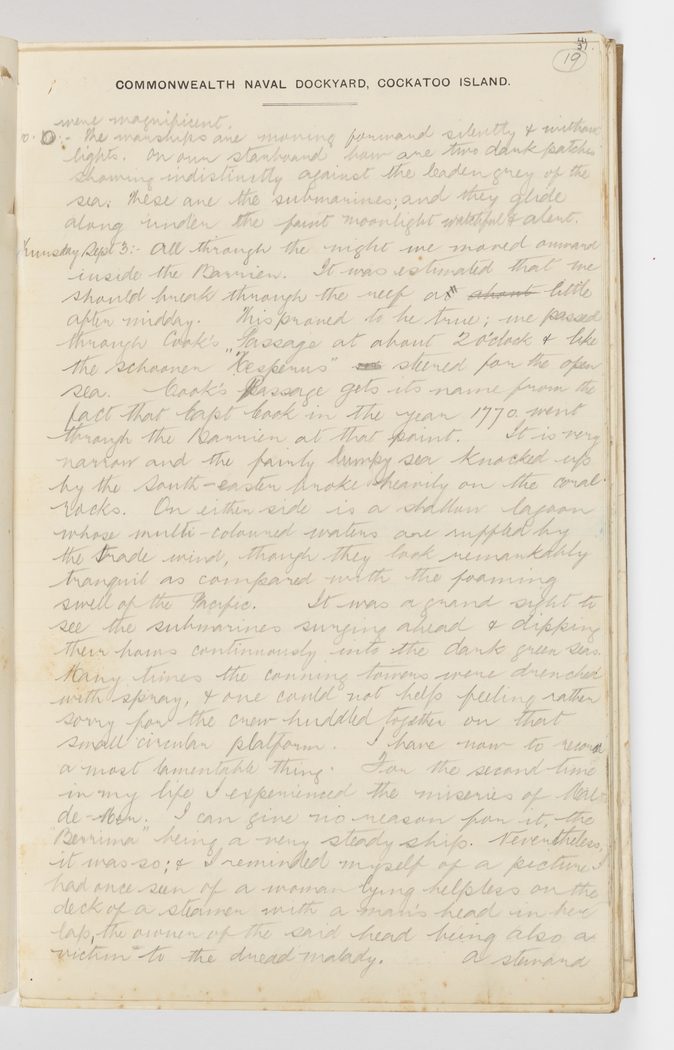 31.
19
COMMONWEALTH NAVAL DOCKYARD, COCKATOO ISLAND.
were magnificent.
:- The warships are moving forward silently & without
lights. On our starboard bow are two dark patches
showing indistinctly against the leaden grey of the
sea. These are the submarines; and they glide
along under the faint moonlight watchful & alert.
Thursday Sept 3:- All through the night we moved onward
inside the Barrier. It was estimated that we
should break through the reef at about little
after midday. This proved to be true; we passed
through Cook's Passage at about 2 o'clock & like
the schooner "Hesperus" steered for the open
sea. Cook's Passage gets its name from the
fact that Capt Cook in the year 1770. went
through the Barrier at that point. It is very
narrow and the fairly lumpy sea knocked up
by the South-easter broke heavily on the coral
rocks. On either side is a shallow lagoon
whose multi-coloured waters are ruffled by
the trade wind, though they look remarkably
tranquil as compared with the foaming
swell of the Pacific. It was a grand sight to
see the submarines surging ahead & dipping
their bows continuously into the dark green seas.
Many times the conning towers were drenched
with spray, & one could not help feeling rather
sorry for the crew huddled together on that
small circular platform. I have now to record
a most lamentable thing. For the second time
in my life I experienced the miseries of Mal-
de-Mer. I can give no reason for it, the
"Berrima" being a very steady ship. Nevertheless,
it was so; & I reminded myself of a picture I
had once seen of a woman lying helpless on the
deck of a steamer with a man's head in her
lap, the owner of the said head being also a
victim to the dread malady. A steward